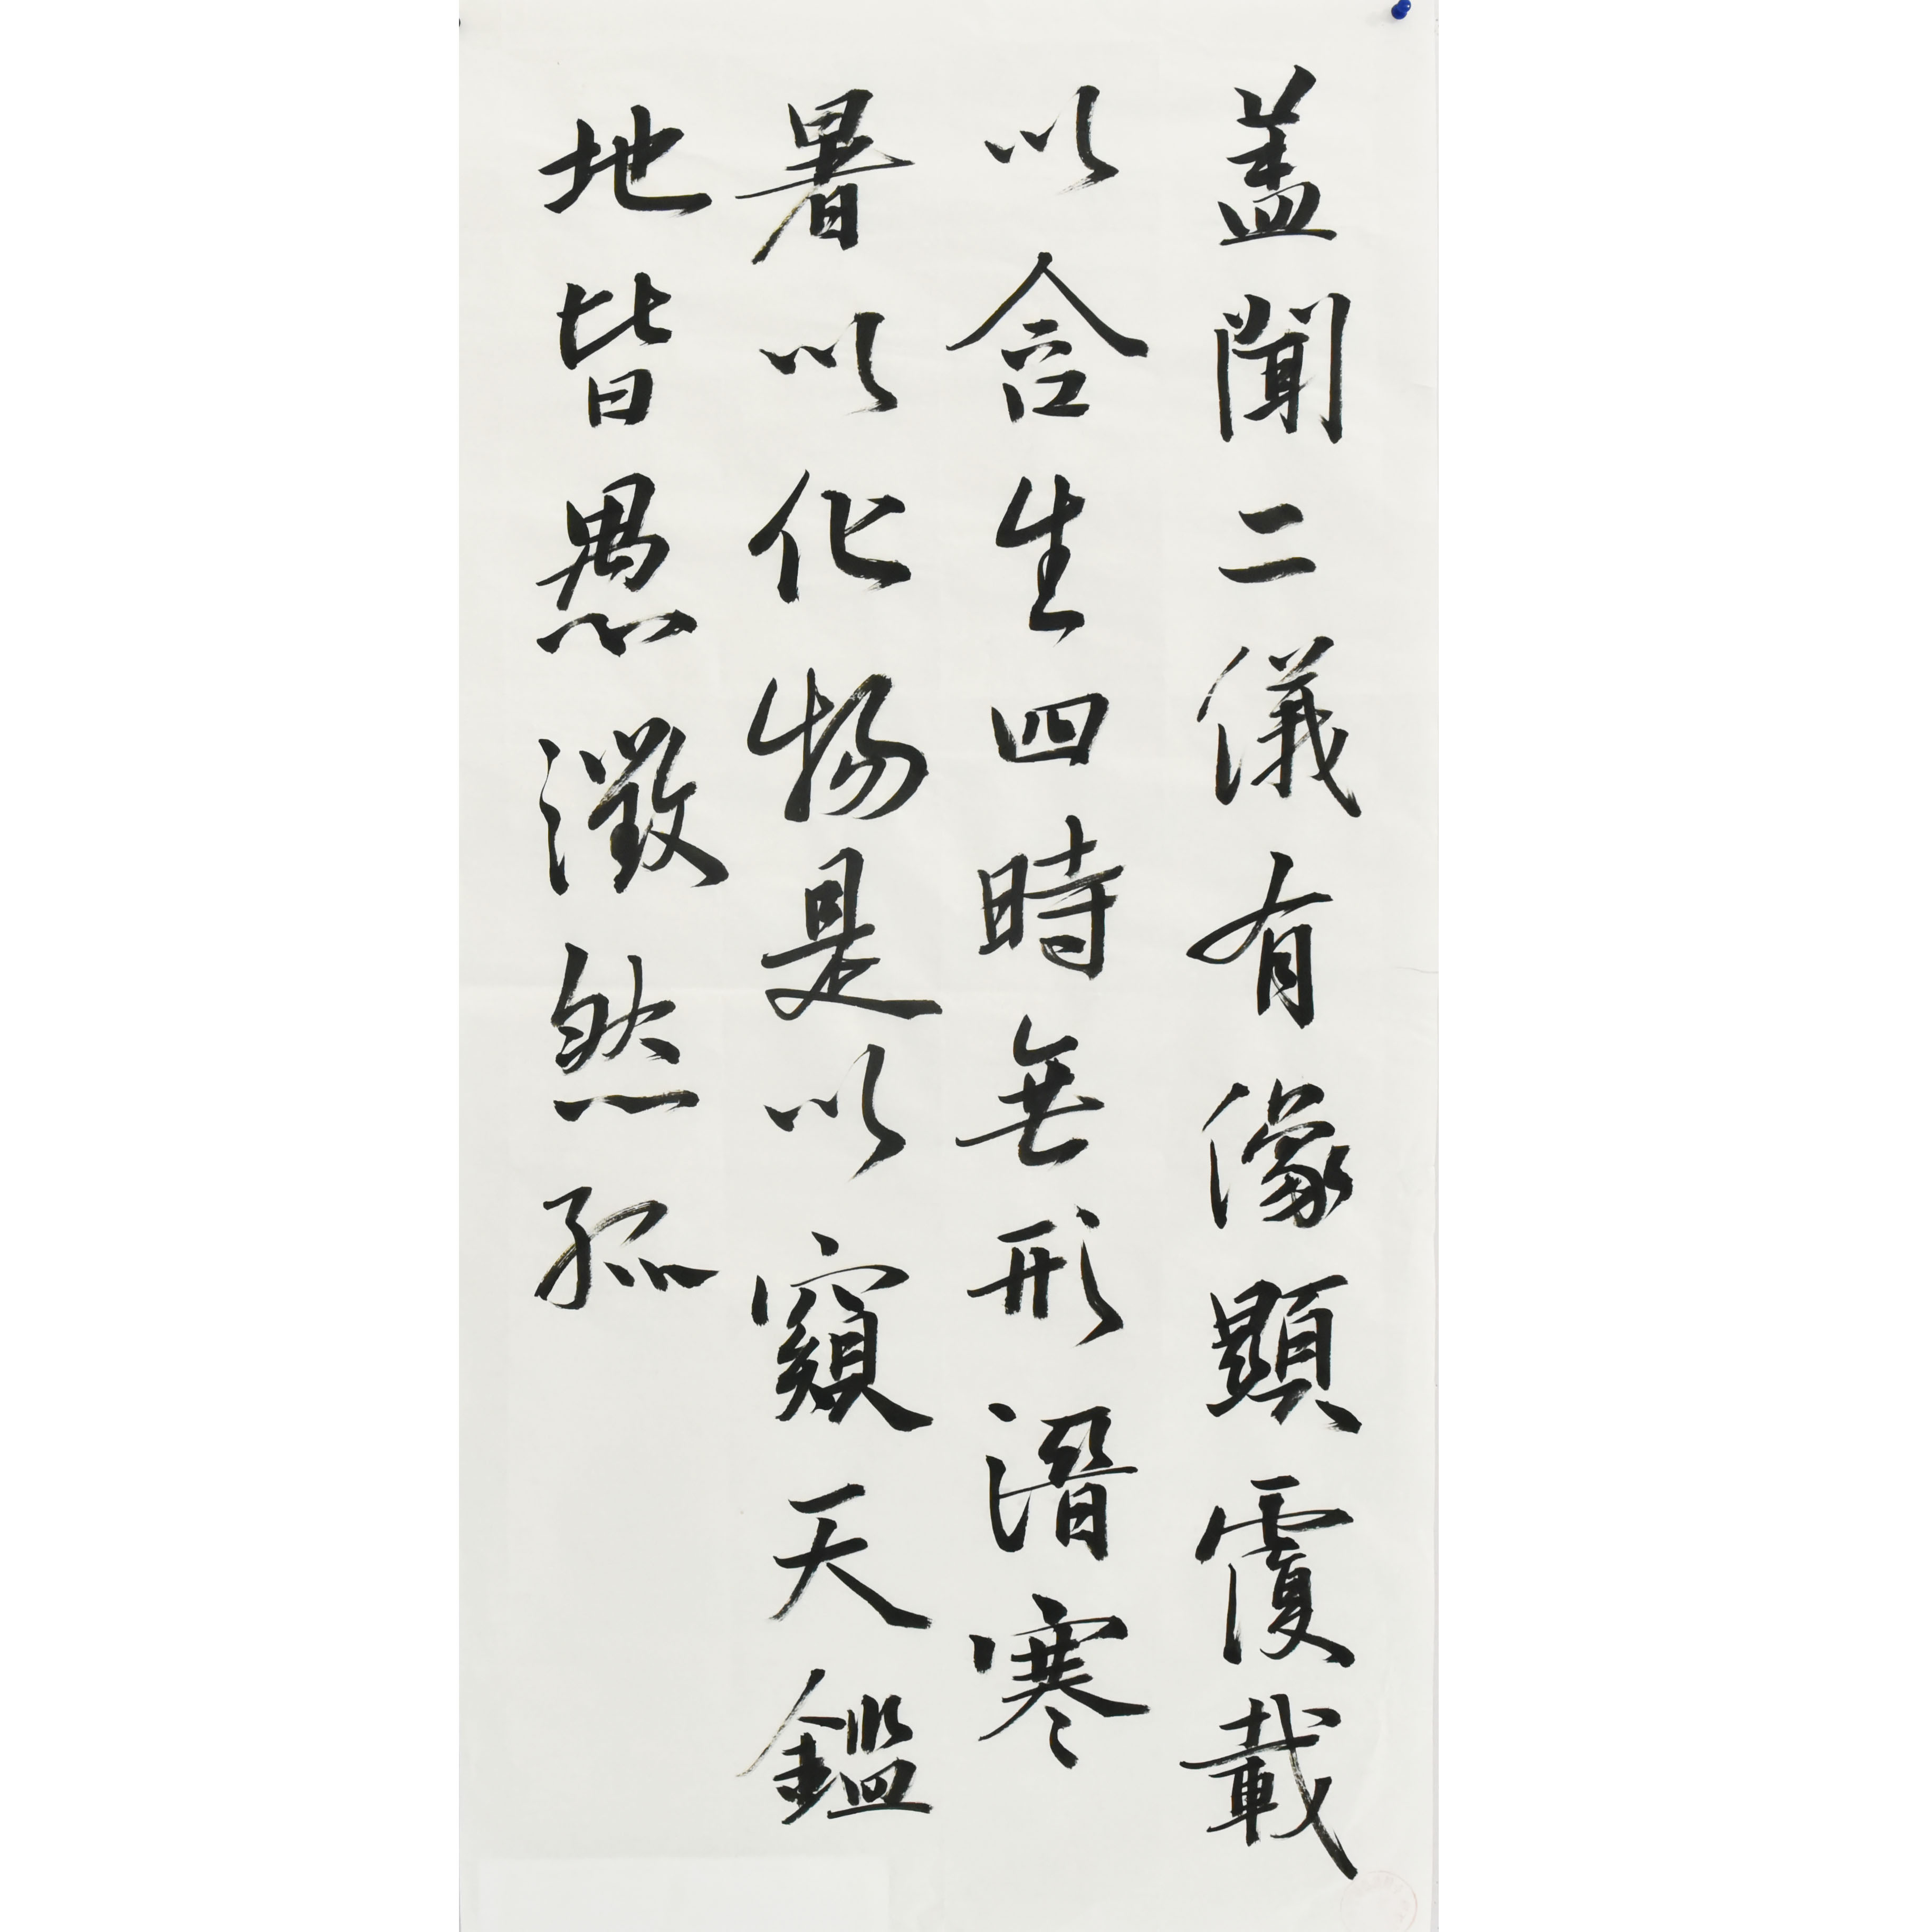 盖聞二儀有像顯覆載
以含生四時無形潛寒
暑以化物是以窺天鑑
地皆愚澂然孤